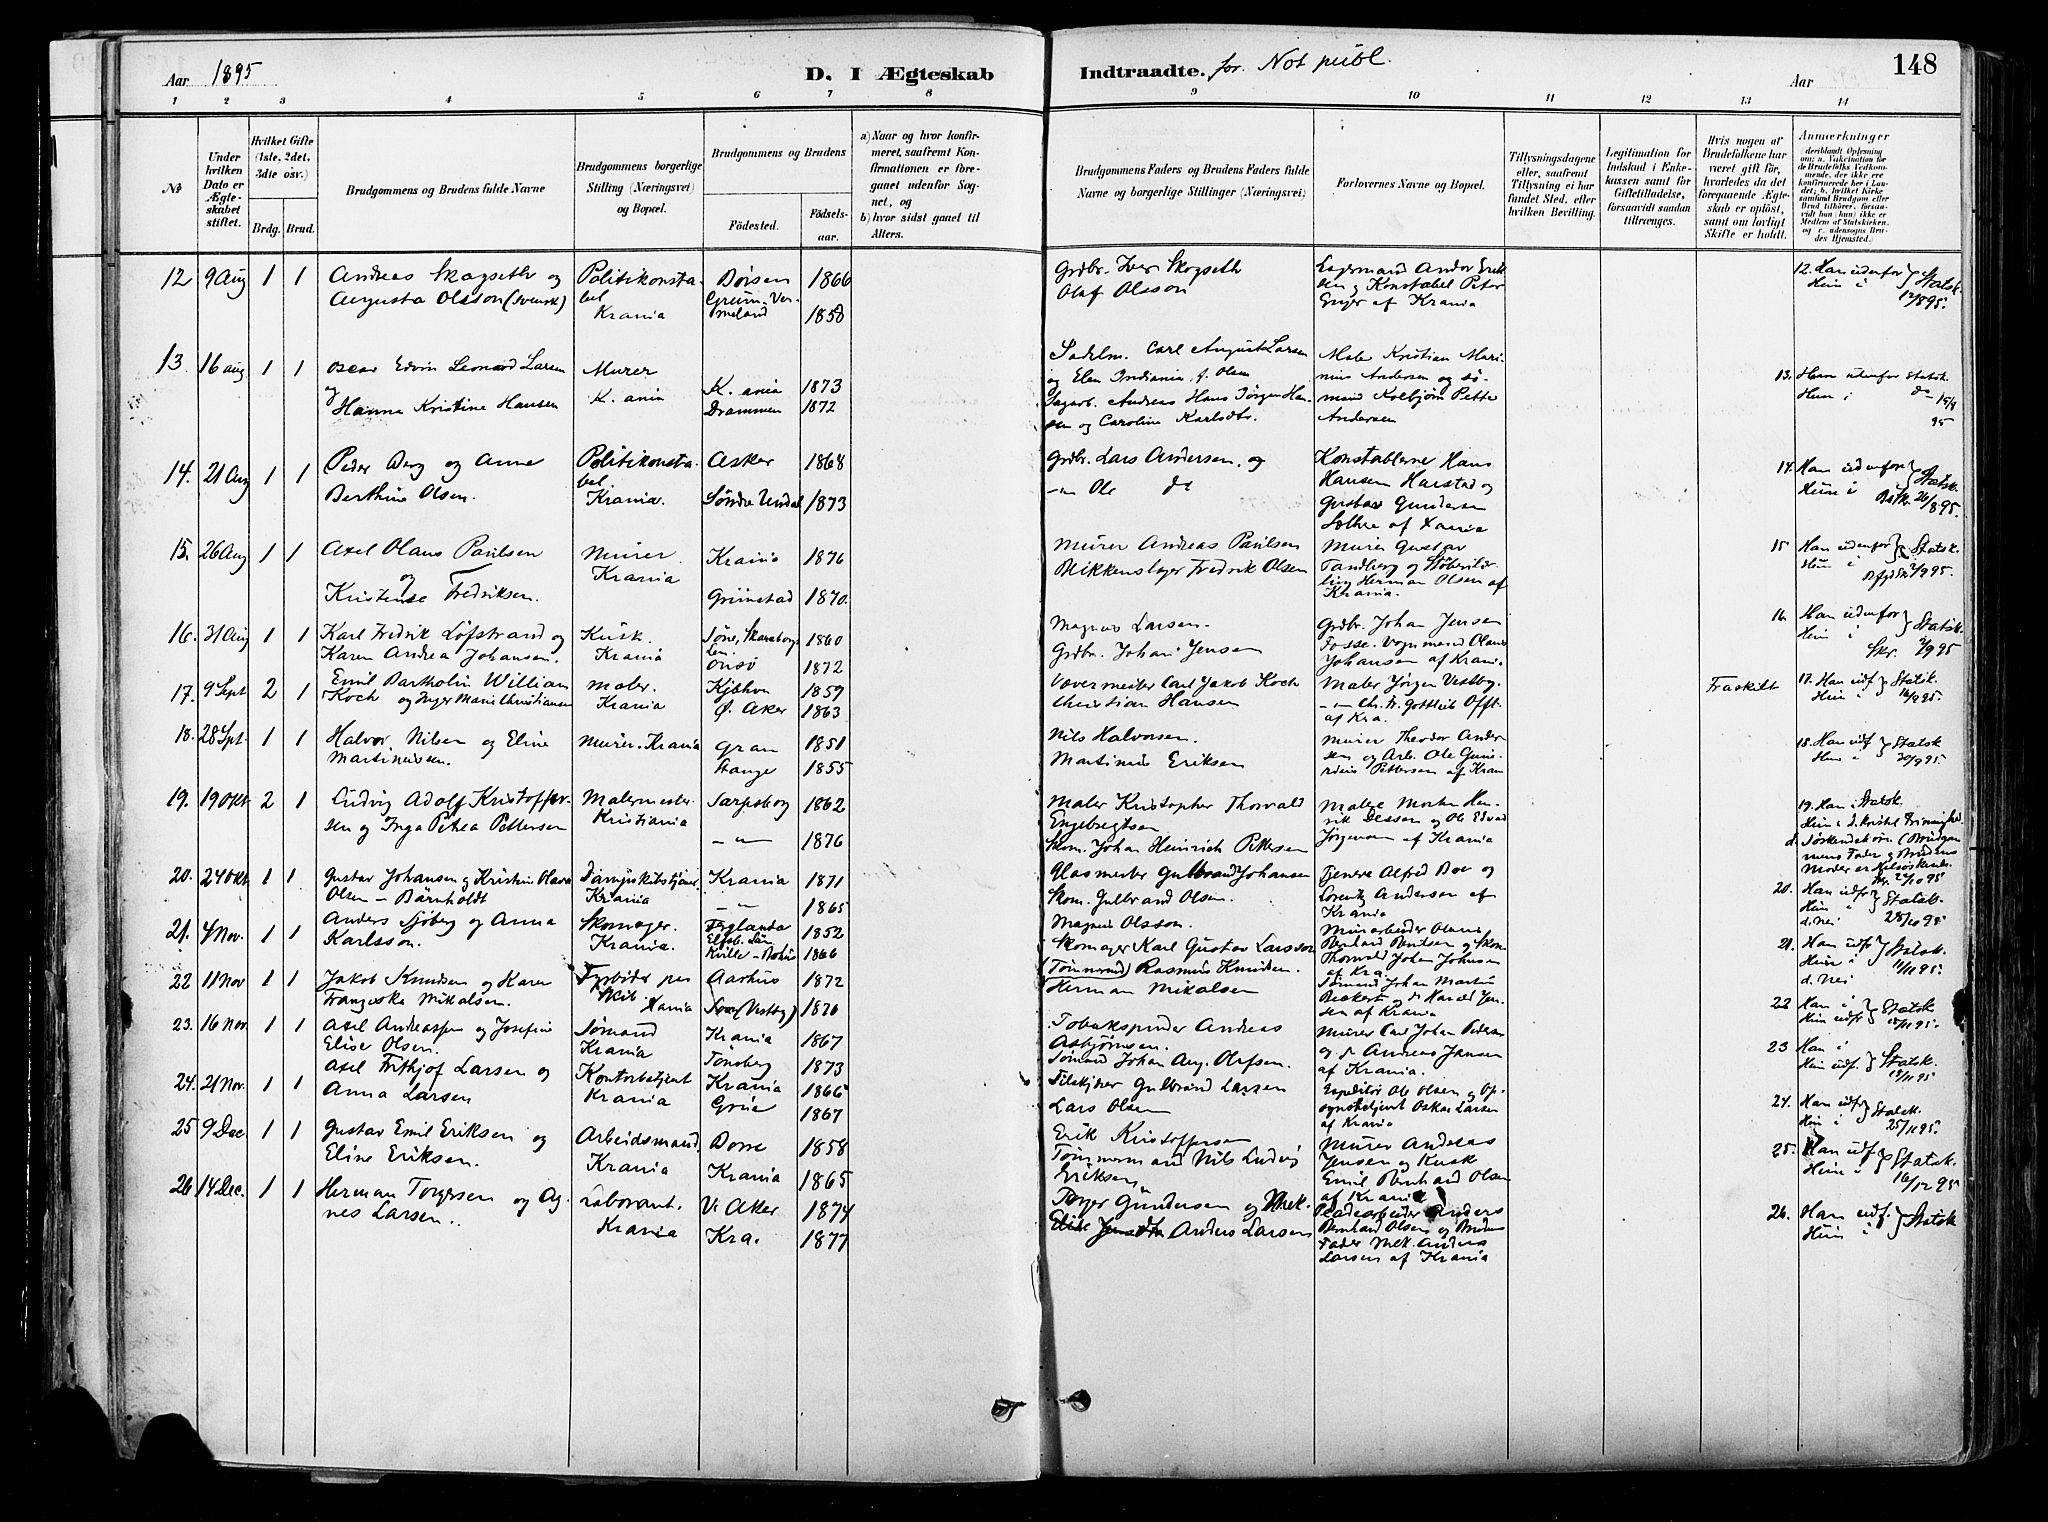 Aar 1895
D. I Ægteskab Indtraadte. for Not publ.
Aar
148
1 2 3 4 5 6 7 8 9 10 11 12 13 14
№
Under hvilken Dato er Ægteskabet stiftet.
Hvilket Gifte (1ste, 2det, 3die osv.)
Brdg. Brud.
Brudgommens og Brudens fulde Navne
Brudgommens borgerlige Stilling (Næringsvei) og Bopæl.
Brudgommens og Brudens
Fødested. Fødselsaar.
a) Naar og hvor konfirmeret, saafremt Konfirmationen er foregaaet udenfor Sognet, og
b) hvor sidst gaaet til Alters.
Brudgommens Faders og Brudens Faders fulde Navne og borgerlige Stillinger (Næringsvei)
Forlovernes Navne og Bopæl.
Tillysningsdagene eller, saafremt Tillysning ei har fundet Sted, efter hvilken Bevilling.
Legitimation for Indskud i Enkekassen samt for Giftetilladelse, forsaavidt saadan tiltrænges.
Hvis nogen af Brudefolkene har været gift før, hvorledes da det foregaaende Ægteskab er opløst, samt om lovligt Skifte er holdt.
Anmerkninger
12 9 Aug 1 1 Andreas Skogseth og Augusta Olsson (Svensk) Politikonstabel Krania Børsen 1866 Grum-Vermeland 1858 Grdbr. Iver Skogseth Olaf Olsson Konstabel Peter Enger af Krania 12. Han udenfor Hun i Statsk. 12/8 95.
13. 16 aug 1 1 Oscar Edvin Leonard Larsen og Hanna Kristine Hansen Murer K.ania K.ania 1873 Drammen 1872 Sadelm. Carl August Larsen og Elen Indiania f. Olsen Sagarb. Andreas Hans Jørgen Hansen og Caroline Karlsdtr. Maler Kristian Marinius Andersen og Sømand Kolbjørn Petter Andersen 13. Han udenfor Statsk. Hun i do 15/9 95
14. 21 Aug 1 1 Peder Berg og Anne Berthine Olsen. Politikonstabel. Krania. Asker 1868 Søndre Undal 1873 Grdbr. Lars Andersen, og -"- Ole do Konstablerne Hans Hansen Harstad og Gustav Gundersen Sæthre af Xania 14. Han udenfor Hun i Statsk. 26/8 95.
15. 26 Aug 1 1 Axel Olaus Paulsen og Kristense Fredriksen. Murer Krania Krania 1876 Grimstad 1870. Murer Andreas Paulsen Blikkenslager Fredrik Olsen Murer Gustav Tandberg og Herman Olsen af Krania. 15 Han udenfor Hun i Statsk. 2/9 95.
16. 31 Aug 1 1 Karl Fredrik Løfstrand og Karen Andrea Johansen. Kusk. Krania Skaraborgs Len. 1860 Onsø 1872 Magnus Larsen. Grdbr. Johan Jensen Grdbr. Johan Jensen Fosse. Vognmand Olaus Johansen af Krania 16. Han udenfor Hun i Statsk. Skr. 2/9 95
17. 9 Sept 2 1 Emil Bartholin William Koch og Inger Marie Christiansen Maler. Krania Kjbhvn 1859 Ø. Aker 1863 Vævermester Carl Jakob Koch Christian Hansen Maler Jørgen Vestby. -"- Chr. Fr. Gottlieb Offt af Kra. Fraskilt 17. Han udf. Hun i Statsk. 16/9 95.
18. 28 Spt. 1 1 Halvor Nilsen og Eline Martineusen. Murer. Krania Gran 1851 Stange 1855 Nils Halvorsen. Martinus Eriksen Murer Theodor Andersen og Arb. Ole Pettersen af Kran 18. Han udf. Hun i Statsk 30/9 95.
19. 19 Okt 2 1 Ludvig Adolf Kristoffersen og Inga Petrea Pettersen Malermester Kristiania Sarpsborg 1862 -"- 1876 Maler Kristopher Thorvald Engebregtsen Skom. Johan Heinrich Pettersen Malere Morten Henrik Dessen og Ole Edvad Jørgensen af Krania 19. Han i Statsk. Hun i d. kristel. Frimenighed. d. Søskendebørn (Brudgommens Fader og Brudens Moder er Helsøskende.) 22/10 95
20. 24 Okt 1 1 Gustav Johansen og Kristine Olava Olsen - Bårnholdt Dampskibstjener Krania Krania 1871 -"- 1865 Glasmester Gulbrand Johansen Skom. Gulbrand Olsen. Tjenere Alfred Boe og Lorentz Andersen af Krania 20. Han udf. Hun i Statsk. 28/10 95 d. Nei
21. 4 Nov. 1 1 Anders Sjøberg og Anna Karlsson. Skomager. Krania. Elfsb. Län 1852 Kville - Bohus 1866 Magnus Olsson. Skomager Karl Gustav Larsson Murarbeider Olaus Bernhard Berntsen og Skom. Thorvald Johan Johnsen af Kra. 21. Han udf. Hun i Statsk. 11/11 95. d. Nei
22 11 Nov 1 1 Jakob Knudsen og Karen Franziska Mikalsen. Fyrbøder paa Skib Krania Aarhus 1872 (Vestby) 1876 (Tømmermd) Rasmus Knudsen. Herman Mikalsen Sømand Johan Martin og do Harald Jensen af Krania 22 Han i Hun udf. Statsk 18/11 95.
23. 16 Nov. 1 1 Axel Andreassen og Josefine Elise Olsen. Sømand Krania Krania 1867 Tønsberg 1873 Tobakspinder Andreas Asbjørnsen. Sømand Johan Aug. Olefsen. Murer Carl Johan Pedersen og do Andreas Jansen af Krania. 23 Han i Hun udf. Statsk. 18/11 95
24. 21 Nov. 1 1 Axel Frithjof Larsen og Anna Larsen Kontorbetjent Krania Krania 1866 Grue 1867 Tilskjærer Gulbrand Larsen Lars Olsen Expeditør Ole Olsen og Opsynsbetjent Oskar Larsen af Krania 24. Han udf. Hun i Statsk. 25/11 95.
25 9 Dec 1 1 Gustav Emil Eriksen og Eline Eriksen. Arbeidsmand. Krania 1858 Krania 1865 Erik Kristoffersen Tømmermand Nils Ludvig Eriksen. Murer Andreas Jensen og Kusk Emil Bernhard Olsen af Krania 25. Han udf. Hun i Statsk. 16/12 95
26 14 Dec. 1 1 Herman Torgersen og Agnes Larsen. Laborant. Krania V. Aker 1874 Kra. 1877 Torger Gundersen og Mek. Anders Larsen Anders Bernhard Olsen og Brudens Fader Mek. Anders Larsen af Krania 26. Han udf. Hun i Statsk